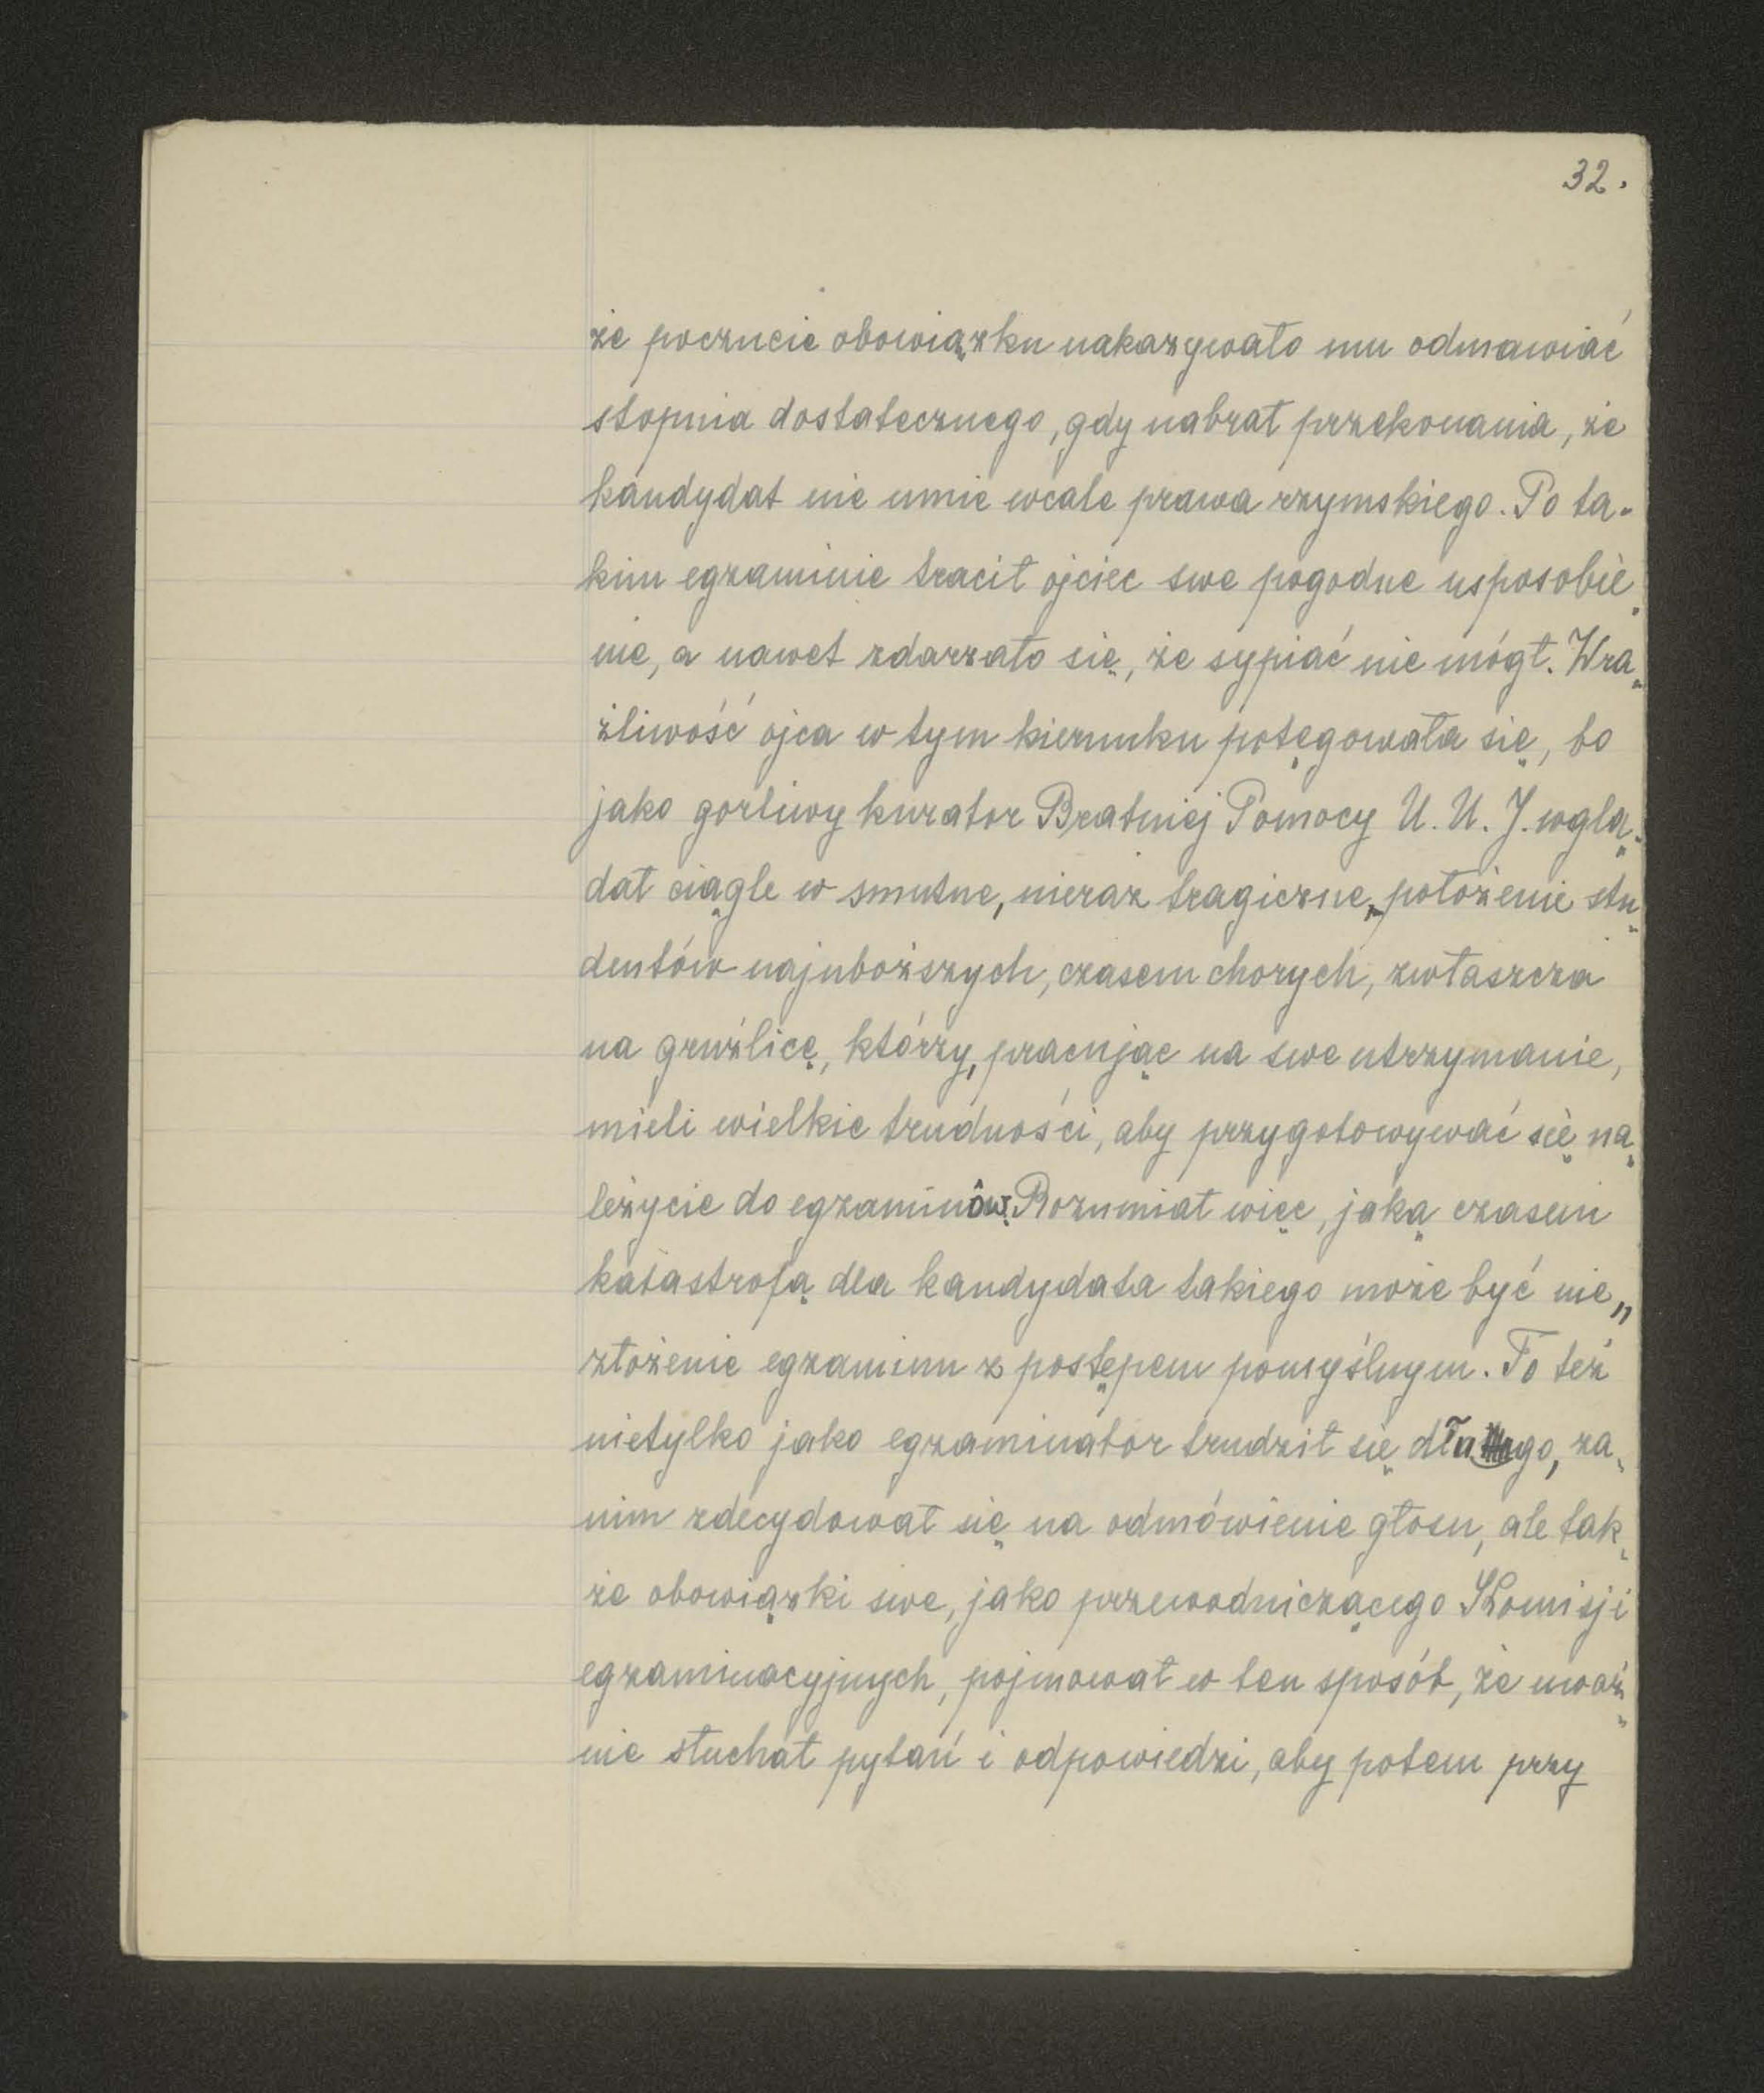 32.
że poczucie obowiązku nakazywało mu odmawiać
stopnia dostatecznego, gdy nabrał przekonania, że
kandydat nie umie wcale prawa rzymskiego. Po ta-
kim egzaminie tracił ojciec swe pogodne usposobie-
nie, a nawet zdarzało się, że sypiać nie mógł. Wra-
żliwość ojca w tym kierunku potęgowała się, bo
jako gorliwy kurator Bratniej Pomocy U. U. J. wglą-
dał ciągle w smutne, nieraz tragiczne, położenie stu-
dentów najuboższych, czasem chorych, zwłaszcza
na gruźlicę, którzy, pracując na swe utrzymanie,
mieli wielkie trudności, aby przygotowywać się na-
leżycie do egzaminów. Rozumiał więc, jaką czasem
katastrofą dla kandydata takiego może być nie-
złożenie egzaminu z postępem pomyślnym. To też
nietylko jako egzaminator trudził się długo, za-
nim zdecydował się na odmówienie głosu, ale tak-
że obowiązki swe, jako przewodniczącego Komisji
egzaminacyjnych, pojmował w ten sposób, że uważ-
nie słuchał pytań i odpowiedzi, aby potem przy